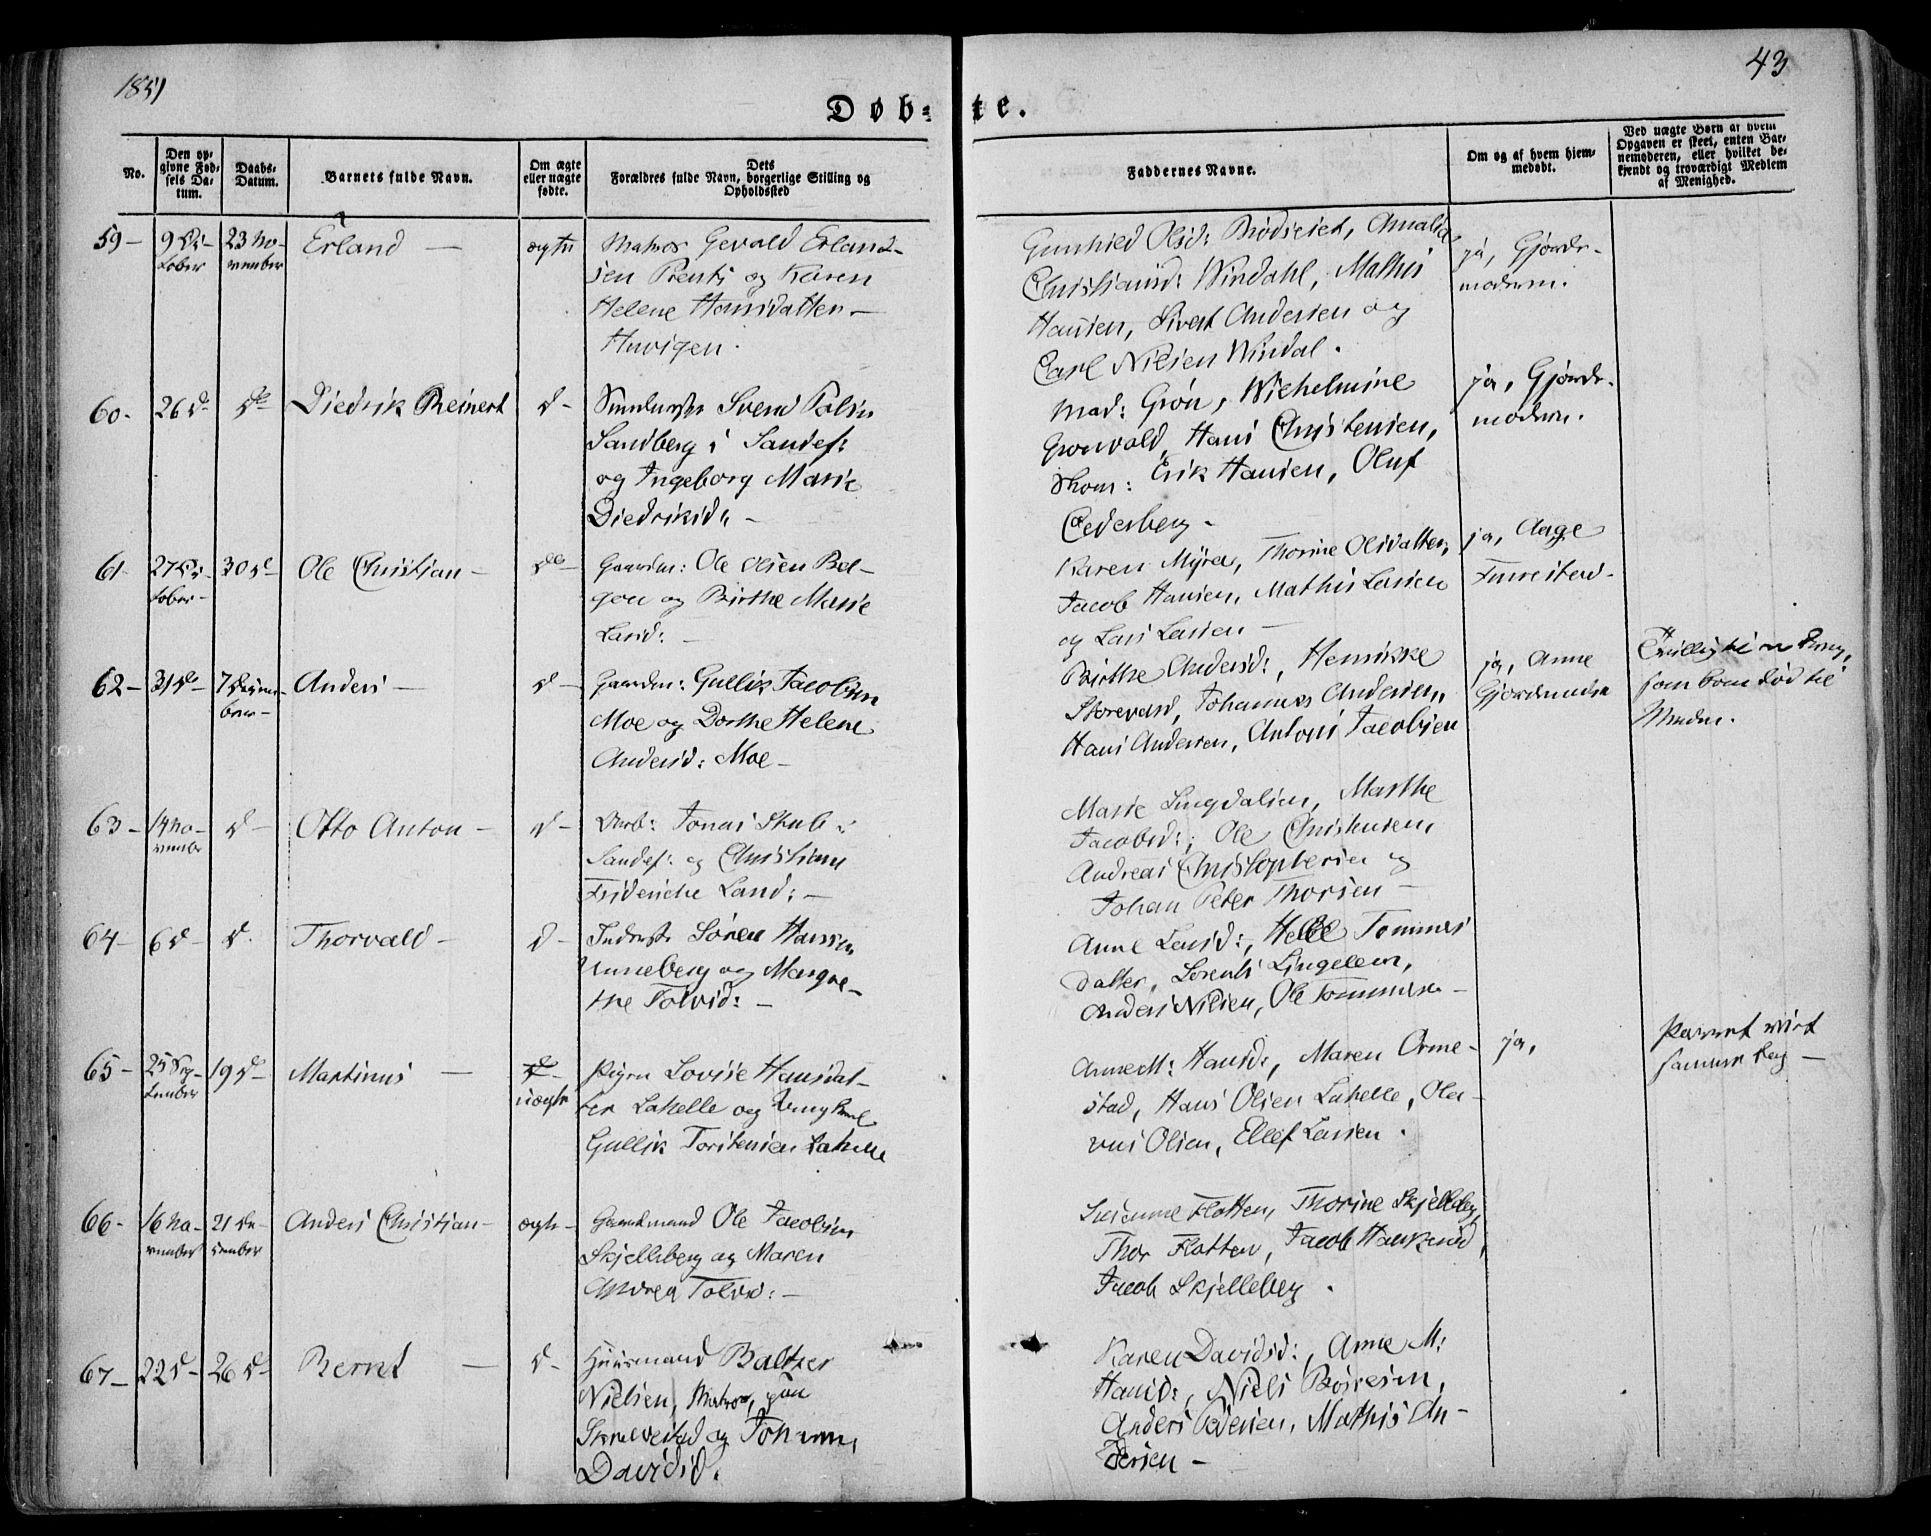 1851
43
Døb=
te.
No.
Den op-
givne Fød-
sels Da-
tum.
Daabs-
Datum.
Barnets fulde Navn.
Om ægte
eller uægte
fødte.
Dets
Forældres fulde Navn, borgerlige Stilling og
Opholdssted
Faddernes Navne.
Om og af hvem hjem-
medøbt.
Ved uægte Børn af hvem
Opgaven er skeet, enten Bar-
nemoderen, eller hvilket be-
kjendt og troværdigt Medlem
af Menighed.
59 –
23 No-
vember
Erland –
ægte
Matros Gevald Erland-
sen Bentz og Karen
Helene Hansdatter –
Huvigen.
Gunhild Olsd:
Christiansd: Windahl, Mathis
Hansen, Sivert Andersen og
Carl Nilsen Windal.
ja, Gjorde-
moderen.
60 –
26 d–
do
Diedrik Reinert
d–
Svend
Sandberg i Sandef:
og Ingeborg Marie
Diedriksd: –
Mad: Grøn, Wilhelmine
Gronvald, Hans Christensen,
Thom: Erik Hansen, Oluf
Cederberg –
ja, Gjorde-
moderen.
61
27
tober –
30 d–
Ole Christian –
do –
Gaardm: Ole Olsen
og Birthe Marie
Larsd: –
Karen Myra, Thorine Olsdatter,
Jacob Hansen, Mathis Larsen
og Lars Larsen –
ja, Aage
62 –
31 do –
7 Decem-
ber –
Anders –
d –
Gaardm: Gullik Jacobsen
Moe og Dorthe Helene
Andersd: Moe –
Birthe Andersd:, Henrikke
Storevard, Johannes Andersen,
Hans Andersen, Antoni Jacobsen
ja, Anne
Gjordemoder
Tvilling
som kom død til
Verden.
63 –
14 No-
vember
d –
Otto Anton –
d –
Jonas Stub i
Sandef: og Christiane
Frideriche Land: –
Marie Lingdalsen, Marthe
Jacobsd:, Ole Christensen,
Andreas Christophersen og
Johan Peter Thorsen –
64 –
6 d –
d.
Thorvald –
d –
Inderst Søren Hansen
Unneberg og Margre-
the Tolvsd: –
Anne Larsd:, Helle Tommes
datter, Lorents Lingelem,
Anders Nilsen, Ole Tommesen –
65 –
25 Sep-
tember
19 d –
Martinus –
uægte
Pigen Lovise Hansdat-
ter Lahelle og Ungkarl
Gullik Torstensen Lahelle
Anne M: Hansd:, Maren Orme-
stad, Hans Olsen Lahelle, Ola-
vus Olsen, Ellef Larsen.
ja,
Parret viet
samme Dag –
66 –
16 No-
vember
21 De-
cember
Anders Christian –
ægte –
Gaardmand Ole Jacobsen
Skjelleberg og Maren
Andrea Tolvsd: –
Susanne Flatten, Thorine Skjelleberg,
Thor Flatten, Jacob Haukerød,
Jacob Skjelleberg.
67 –
22 d –
26 d –
Bernt –
d –
Huusmand Baltzer
Nielsen, Matros, paa
og Johanne
Davidsd.
Karen Davidsd:, Anne M:
Hansd:, Niels Børresen,
Anders Pedersen, Mathis An-
dersen –